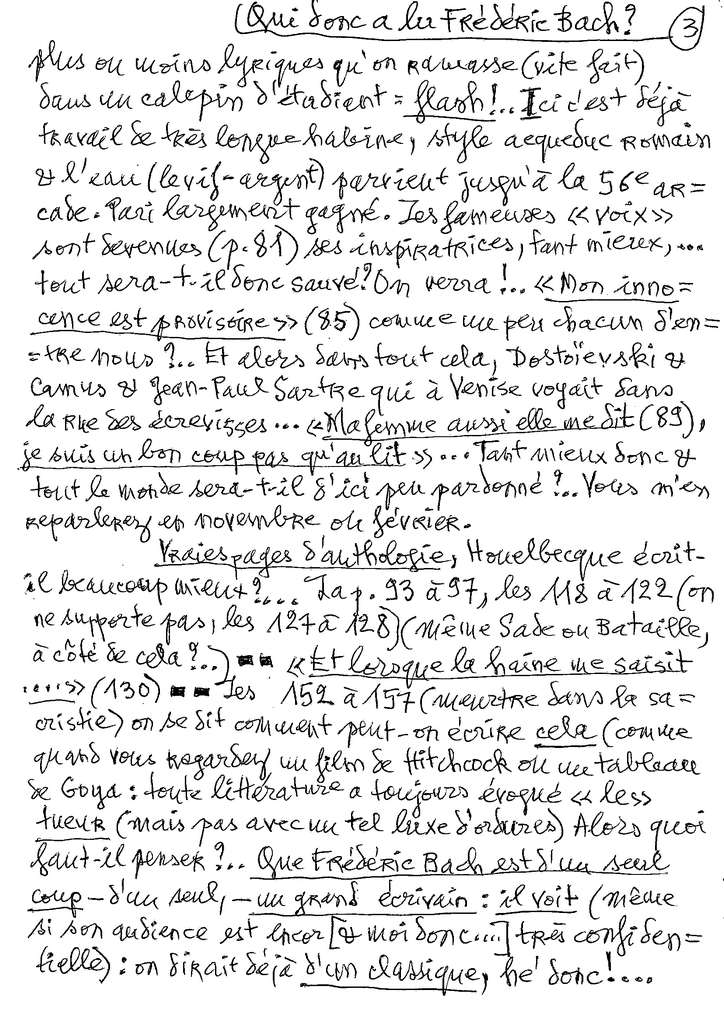 (Qui donc a lu Frédéric Bach? 3
plus ou moins lyriques qu'on ramasse (vite fait)
dans un calepin d'étudiant = flash!.. Ici c'est déjà
travail de très longue haleine, style aequeduc romain
& l'eau (le vif-argent) parvient jusqu'à la 56e ar=
cade. Pari largement gagné. Les fameuses «voix»
sont devenues (p. 81) ses inspiratrices, tant mieux, ...
tout sera-t-il donc sauvé? On verra!.. «Mon inno=
cence est provisoire» (85) comme un peu chacun d'en=
=tre nous?.. Et alors dans tout cela, Dostoïevski &
Camus & Jean-Paul Sartre qui à Venise voyait dans
la rue des écrevisses... «Ma femme aussi elle me dit (89),
je suis un bon coup pas qu'au lit»... Tant mieux donc &
tout le monde sera-t-il d'ici peu pardonné?.. Vous m'en
reparlerez en novembre ou février.
Vraies pages d'anthologie, Houelbecque écrit-
il beaucoup mieux?.... La p. 93 à 97, les 118 à 122 (on
ne supporte pas, les 127 à 128) (même Sade ou Bataille,
à côté de cela?..) -- «Et lorsque la haine me saisit
....» (130) -- Les 152 à 157 (meurtre dans la sa=
cristie) on se dit comment peut-on écrire cela (comme
quand vous regardez un film de Hitchcock ou un tableau
de Goya : toute littérature a toujours évoqué «les»
tueur (mais pas avec un tel luxe d'ordures) Alors quoi
faut-il penser?.. Que Frédéric Bach est d'un seul
coup - d'un seul, - un grand écrivain : il voit (même
si son audience est encor [& moi donc....] très confiden=
tielle) : on dirait déjà d'un classique, hé donc!....